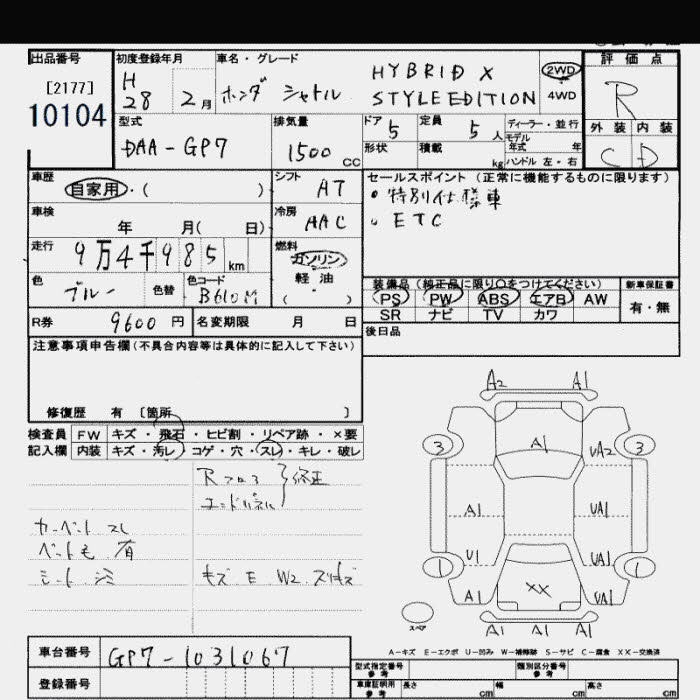 出品番号
[2177]
10104
初度登録年月
H 28 2月
車名・グレード
ホンダ シャトル HYBRID X
STYLE EDITION
2WD
4WD
評価点
R
外装 内装
C D
型式
DAA-GP7
排気量
1500 cc
ドア 5
定員 5人
ディーラー・並行
モデル年式 年
形状
積載 kg
ハンドル 左・右
車歴
自家用・( )
シフト
AT
セールスポイント (正常に機能するものに限ります)
・特別仕様車
・ETC
車検
年 月( 日)
冷房
AAC
走行
9万4千985km
燃料
ガソリン
軽油
( )
色
ブルー
色替
色コード
B610M
装備品 (純正品に限り○をつけてください)
PS PW ABS エアB AW
SR ナビ TV カワ
新車保証書
有・無
R券 9600円
名変期限 月 日
後日品
注意事項申告欄 (不具合内容等は具体的に記入して下さい)
修復歴 有 〔箇所 〕
検査員記入欄
FW キズ・飛石・ヒビ割・リペア跡・×要
内装 キズ・汚レ・コゲ・穴・スレ・キレ・破レ
Rフロア
エンドパネル
修正
カーペット スレ
ペット毛 有
シート シミ
キズ E W2 スリキズ
A2 A1
A1
3 3
UA2
A1 UA1
U1 UA1
1 1
A1 XX UA1
スペア
A1 A1 A1
A-キズ E-エクボ U-凹み W-補修跡 S-サビ C-腐食 XX-交換済
車台番号
GP7-1031067
登録番号
型式指定番号
参考
類別区分番号
参考
車庫証明用
参考
長さ cm
幅 cm
高さ cm